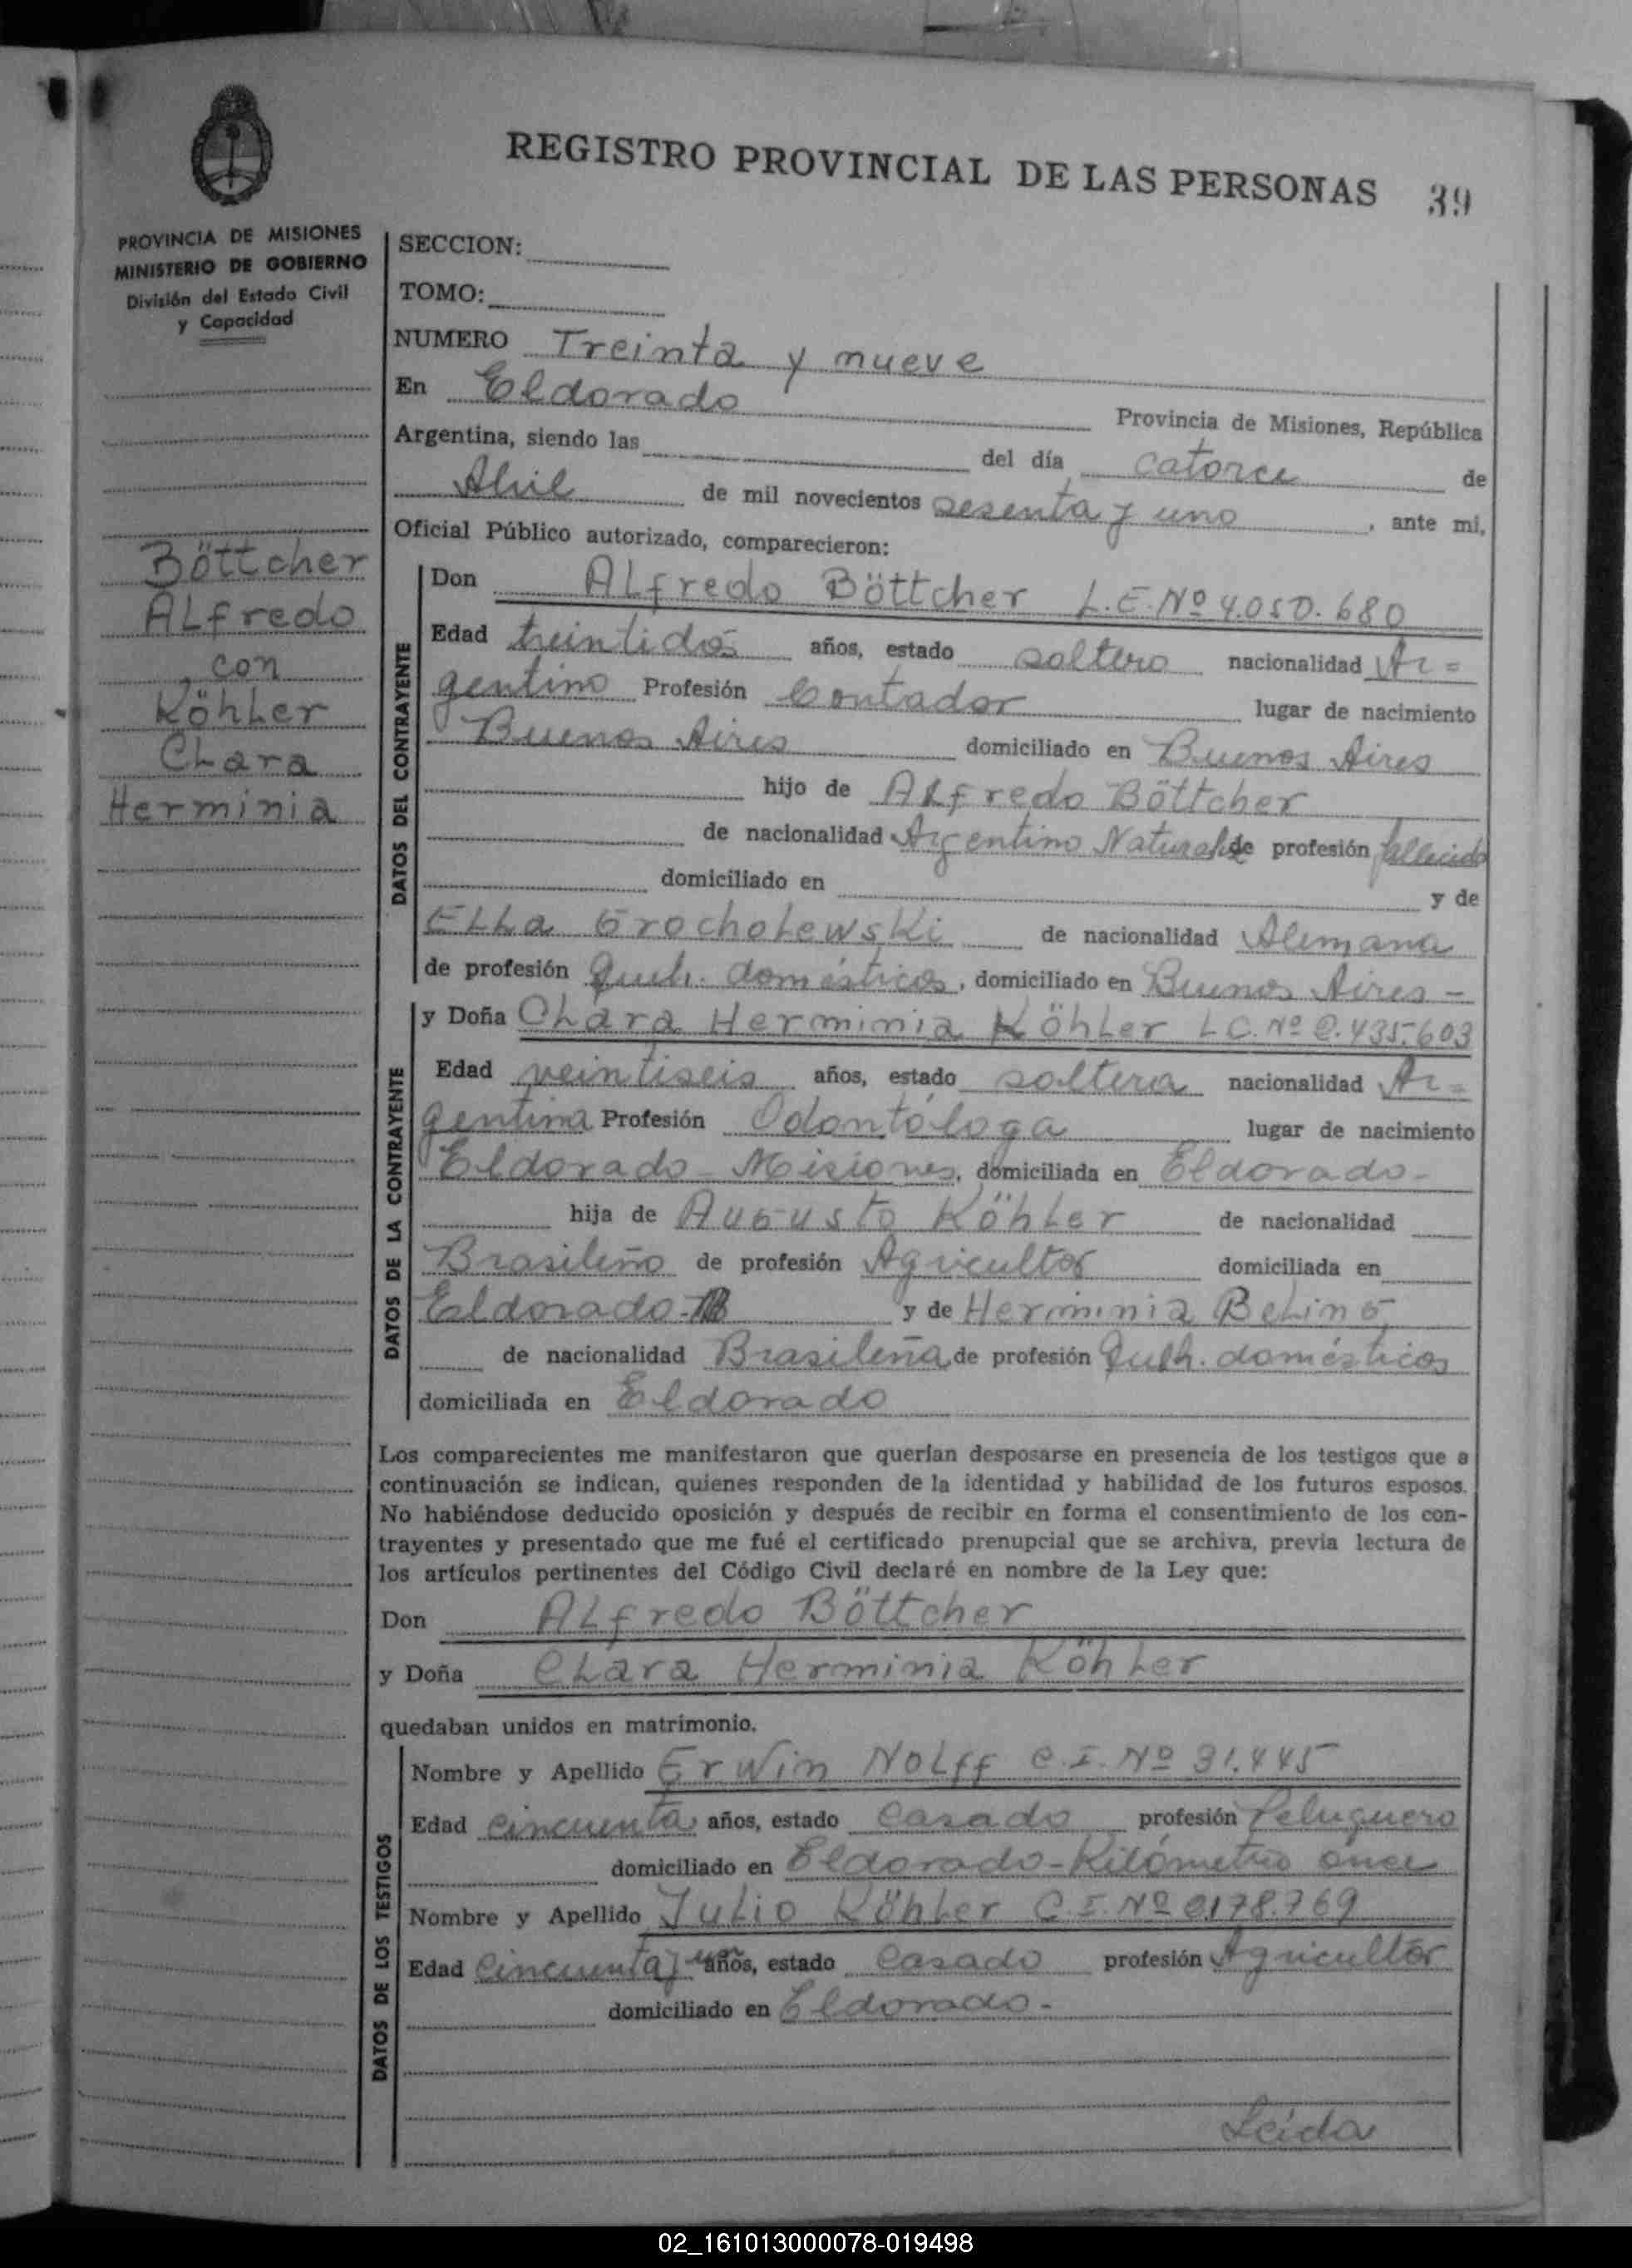 REGISTRO PROVINCIAL DE LAS PERSONAS 39
PROVINCIA DE MISIONES
MINISTERIO DE GOBIERNO
División del Estado Civil
y Capacidad
Böttcher
ALfredo
con
KöhLer
CLara
Herminia
SECCION:
TOMO:
NUMERO Treinta y nueve
En Eldorado Provincia de Misiones, República
Argentina, siendo las del día catorce de
Abril de mil novecientos sesenta y uno, ante mi,
Oficial Público autorizado, comparecieron:
DATOS DEL CONTRAYENTE
Don ALfredo Böttcher L.E. Nº 4.050.680
Edad treintidós años, estado soltero nacionalidad Ar=
gentino Profesión Contador lugar de nacimiento
Buenos Aires domiciliado en Buenos Aires
hijo de ALfredo Böttcher
de nacionalidad Argentino Natural de profesión fallecido
domiciliado en y de
ELLa GrochoLewski de nacionalidad Alemana
de profesión Queh. domésticos, domiciliado en Buenos Aires -
DATOS DE LA CONTRAYENTE
y Doña CLara Herminia KöhLer L.C. Nº 2.435.603
Edad veintiseis años, estado soltera nacionalidad Ar=
gentina Profesión Odontóloga lugar de nacimiento
Eldorado - Misiones, domiciliada en Eldorado -
hija de Augusto KöhLer de nacionalidad
Brasileño de profesión Agricultor domiciliada en
Eldorado - y de Herminia BeLing,
de nacionalidad Brasileña de profesión Queh. domésticos
domiciliada en Eldorado
Los comparecientes me manifestaron que querían desposarse en presencia de los testigos que a
continuación se indican, quienes responden de la identidad y habilidad de los futuros esposos.
No habiéndose deducido oposición y después de recibir en forma el consentimiento de los con-
trayentes y presentado que me fué el certificado prenupcial que se archiva, previa lectura de
los artículos pertinentes del Código Civil declaré en nombre de la Ley que:
Don ALfredo Böttcher
y Doña CLara Herminia KöhLer
quedaban unidos en matrimonio.
DATOS DE LOS TESTIGOS
Nombre y Apellido Erwin NoLff C.I. Nº 31.445
Edad cincuenta años, estado casado profesión Peluquero
domiciliado en Eldorado - Kilómetro once
Nombre y Apellido JuLio KöhLer C.I. Nº 2.178.769
Edad cincuenta y un años, estado casado profesión Agricultor
domiciliado en Eldorado -
Leída
02_161013000078-019498